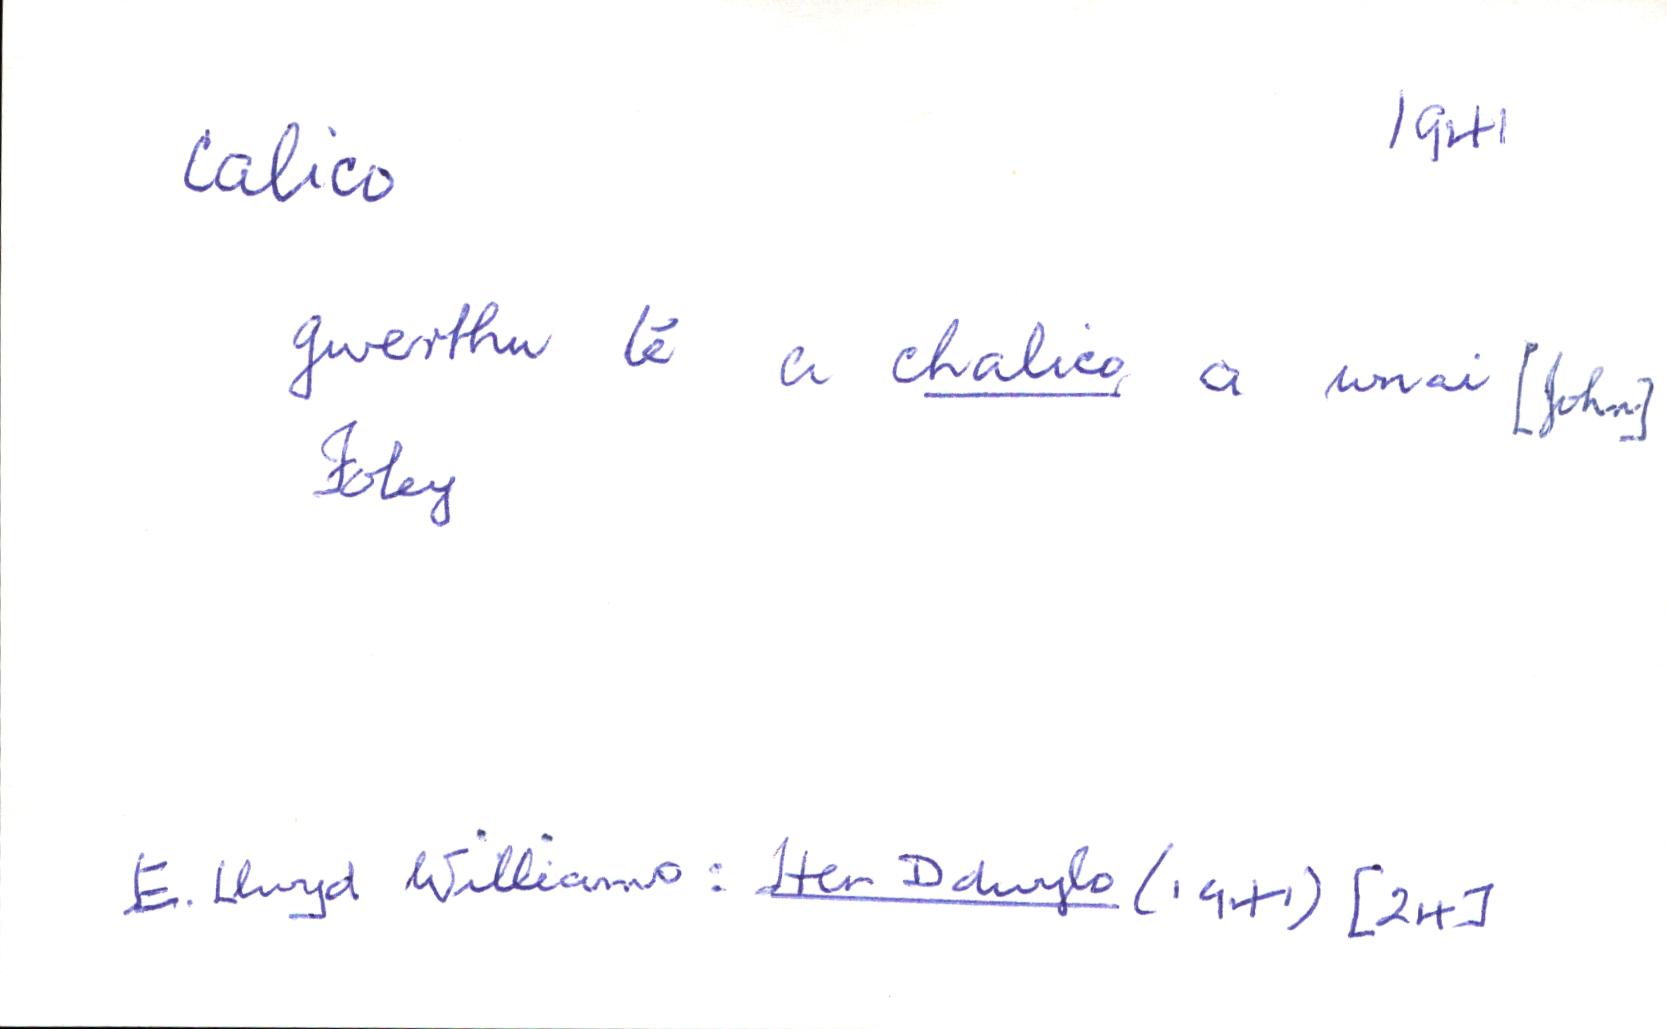 calico 1941
gwerthu tê a chalico, a wnai [John]
Foley
E. Llwyd Williams: Hen Ddwylo (1941) [24]